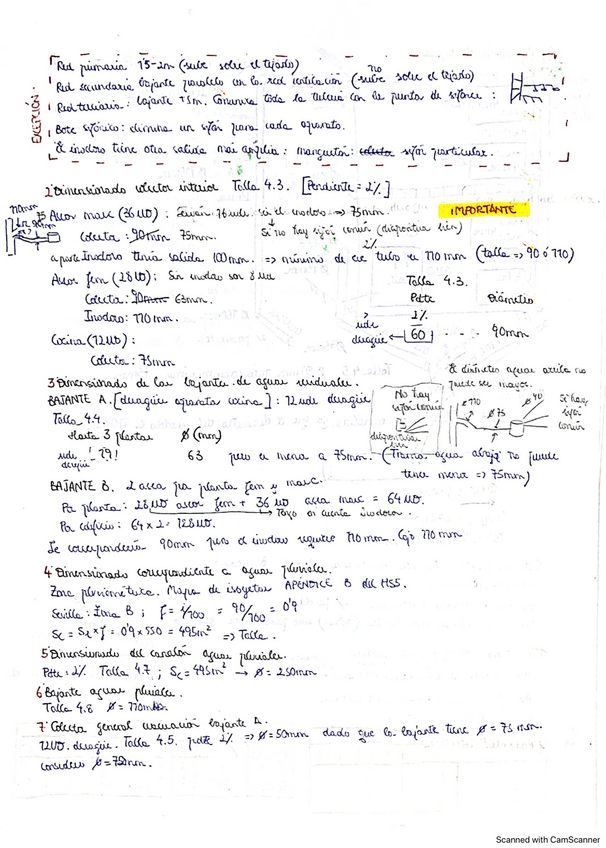 EXCEPCIÓN.
Red primaria 1'5-2m (sube sobre el tejado)
Red secundaria bajante paralelo con la red ventilación (no sube sobre el tejado)
Red terciaria: bajante +5m. Conexiona toda la tubería con los puntos de sifones :
Bote sifónico: elimina un sifón para cada aparato.
El inodoro tiene otra salida más amplia: manguetón: sifón particular.
2 Dimensionado colector interior Tabla 4.3. [Pendiente = 2%]
110mm
Aseo masc (36 UD) : 16 ude si el inodoro => 75mm. IMPORTANTE
Colector: 90mm 75mm. Si no hay sifón común (dispositiva bien)
2%
a parte Inodoro tenía salida 100mm. => mínimo de ese tubo es 110 mm (tabla => 90 ó 110)
Aseo fem (28 UD): Sin inodoro son 8 ud
Tabla 4.3.
Colector: 90mm 63mm. Pdte Diámetro
Inodoro: 110 mm. 2%
Cocina (12 UD) : ude desagüe ← 60 - - - 90mm
Colector: 75mm
El diámetro aguas arriba no puede ser mayor.
3 Dimensionado de las bajantes de aguas residuales.
BAJANTE A. [desagüe aparatos cocina] : 12 ude desagüe
No hay sifón común
dispositiva bien
ø110 ø75 ø40
Si hay sifón común
Tabla 4.4.
Hasta 3 plantas ø (mm)
ude desagüe 19! 63 pero es menor a 75mm. (Tramo agua abajo no puede tener menor => 75mm)
BAJANTE B. 2 aseos por planta fem y masc.
Por planta : 28 UD aseo fem + 36 UD aseo masc = 64 UD.
Tengo en cuenta inodoros.
Por edificio: 64 x 2 = 128 UD.
Se correspondería 90mm pero el inodoro requiere 110 mm. Cojo 110 mm
4 Dimensionado correspondiente a aguas pluviales.
Zona pluviométrica. Mapa de isoyetas APÉNDICE B del HS5.
Sevilla: Zona B ; f = i/100 = 90/100 = 0'9
Sc = SR x f = 0'9 x 550 = 495m² => Tabla.
5 Dimensionado del canalón aguas pluviales.
Pdte: 2% Tabla 4.7 ; Sc = 495m² → ø = 250mm
6 Bajante aguas pluviales.
Tabla 4.8 ø = 110mm
7 Colector general evacuación bajante A.
12UD. desagüe. Tabla 4.5. pdte 2% => ø = 50mm dado que la bajante tiene ø = 75 mm.
considero ø = 750mm.
Scanned with CamScanner